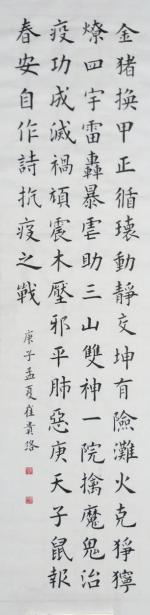 金猪換甲正循環動靜交坤有險灘火克猙獰
燎四宇雷轟暴虐助三山雙神一院擒魔鬼治
疫功成滅禍頑震木壓邪平肺惡庚天子鼠報
春安自作詩抗疫之戰
庚子孟夏崔貴珞